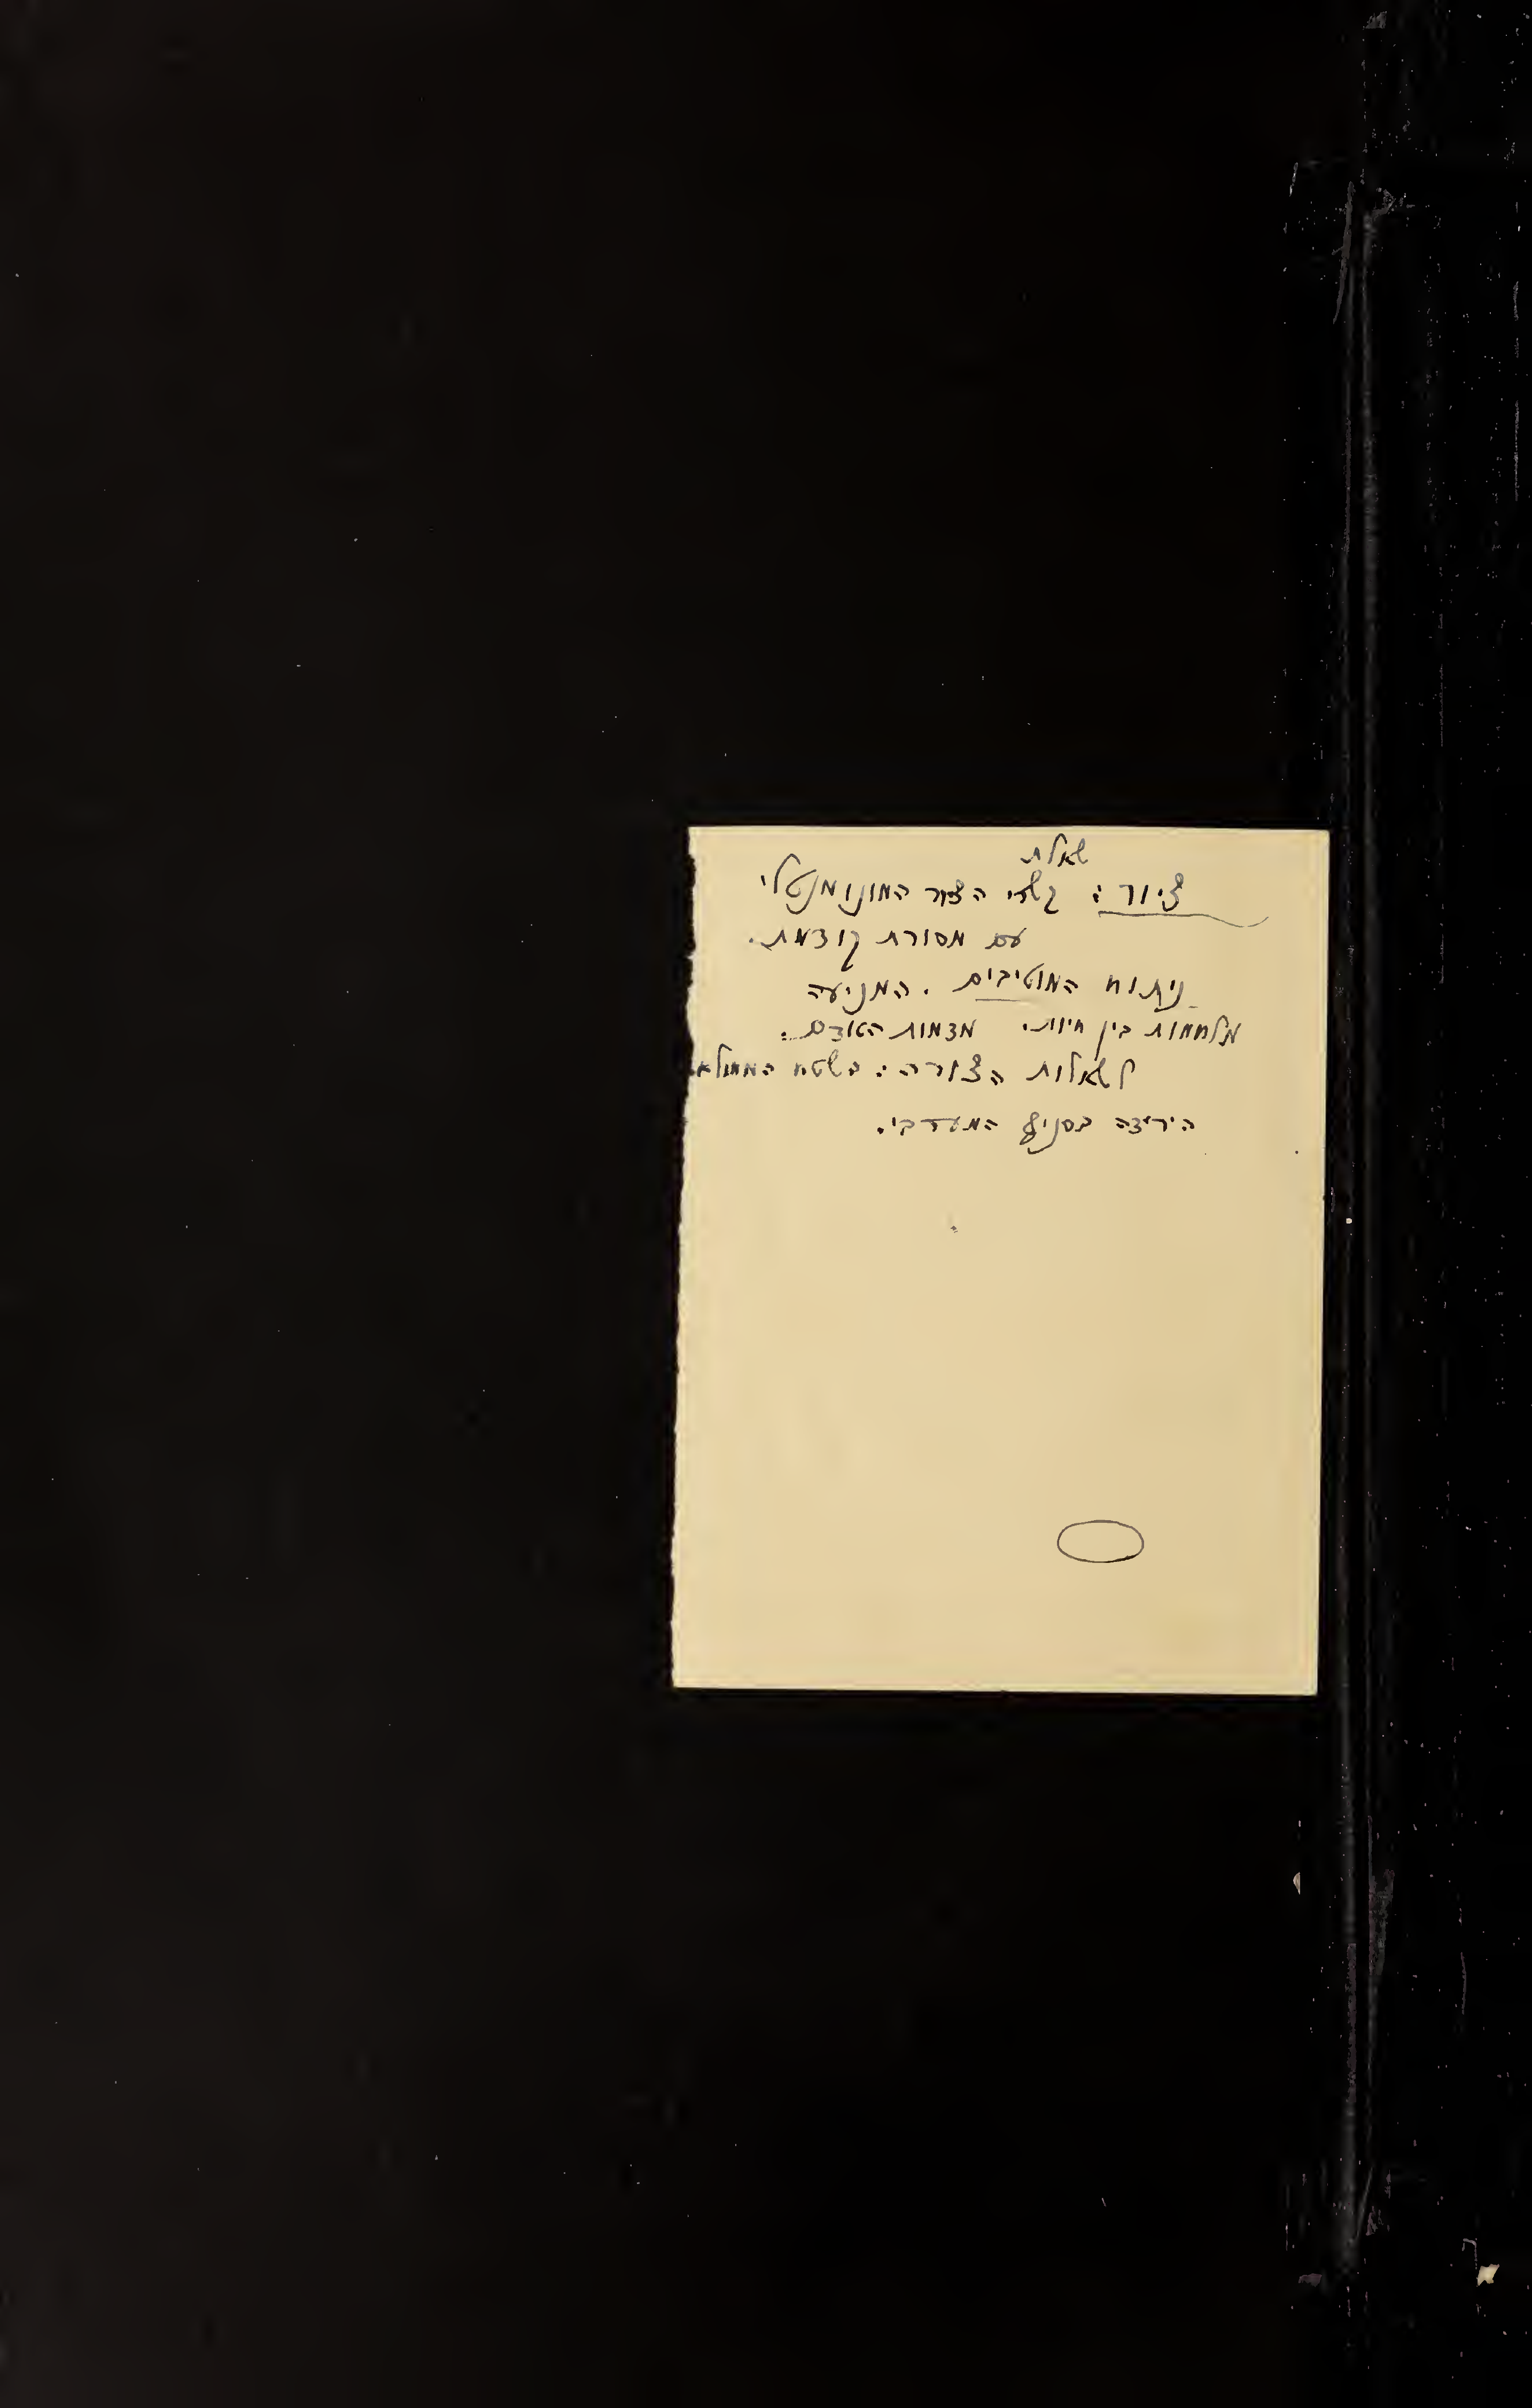 שאלת
ציור: קשרי הציור המונומנטלי
עם מסורת קודמת.
ניתוח המוטיבים. המניעה
מלחמות בין חיות. מצמות האדם:
לשאלות הצורה: השטח הממולא
היריצה בסניף המערבי.